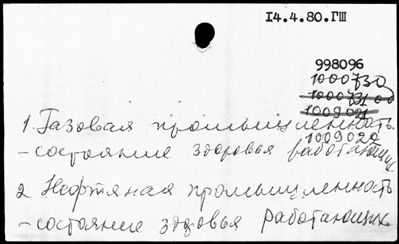 14.4.80.ГIII
998096
1000730
1000731
1009021
1. Газовая промышленность
1009022
- состояние здоровья работающих
2. Нефтяная промышленность
- состояние здоровья работающих